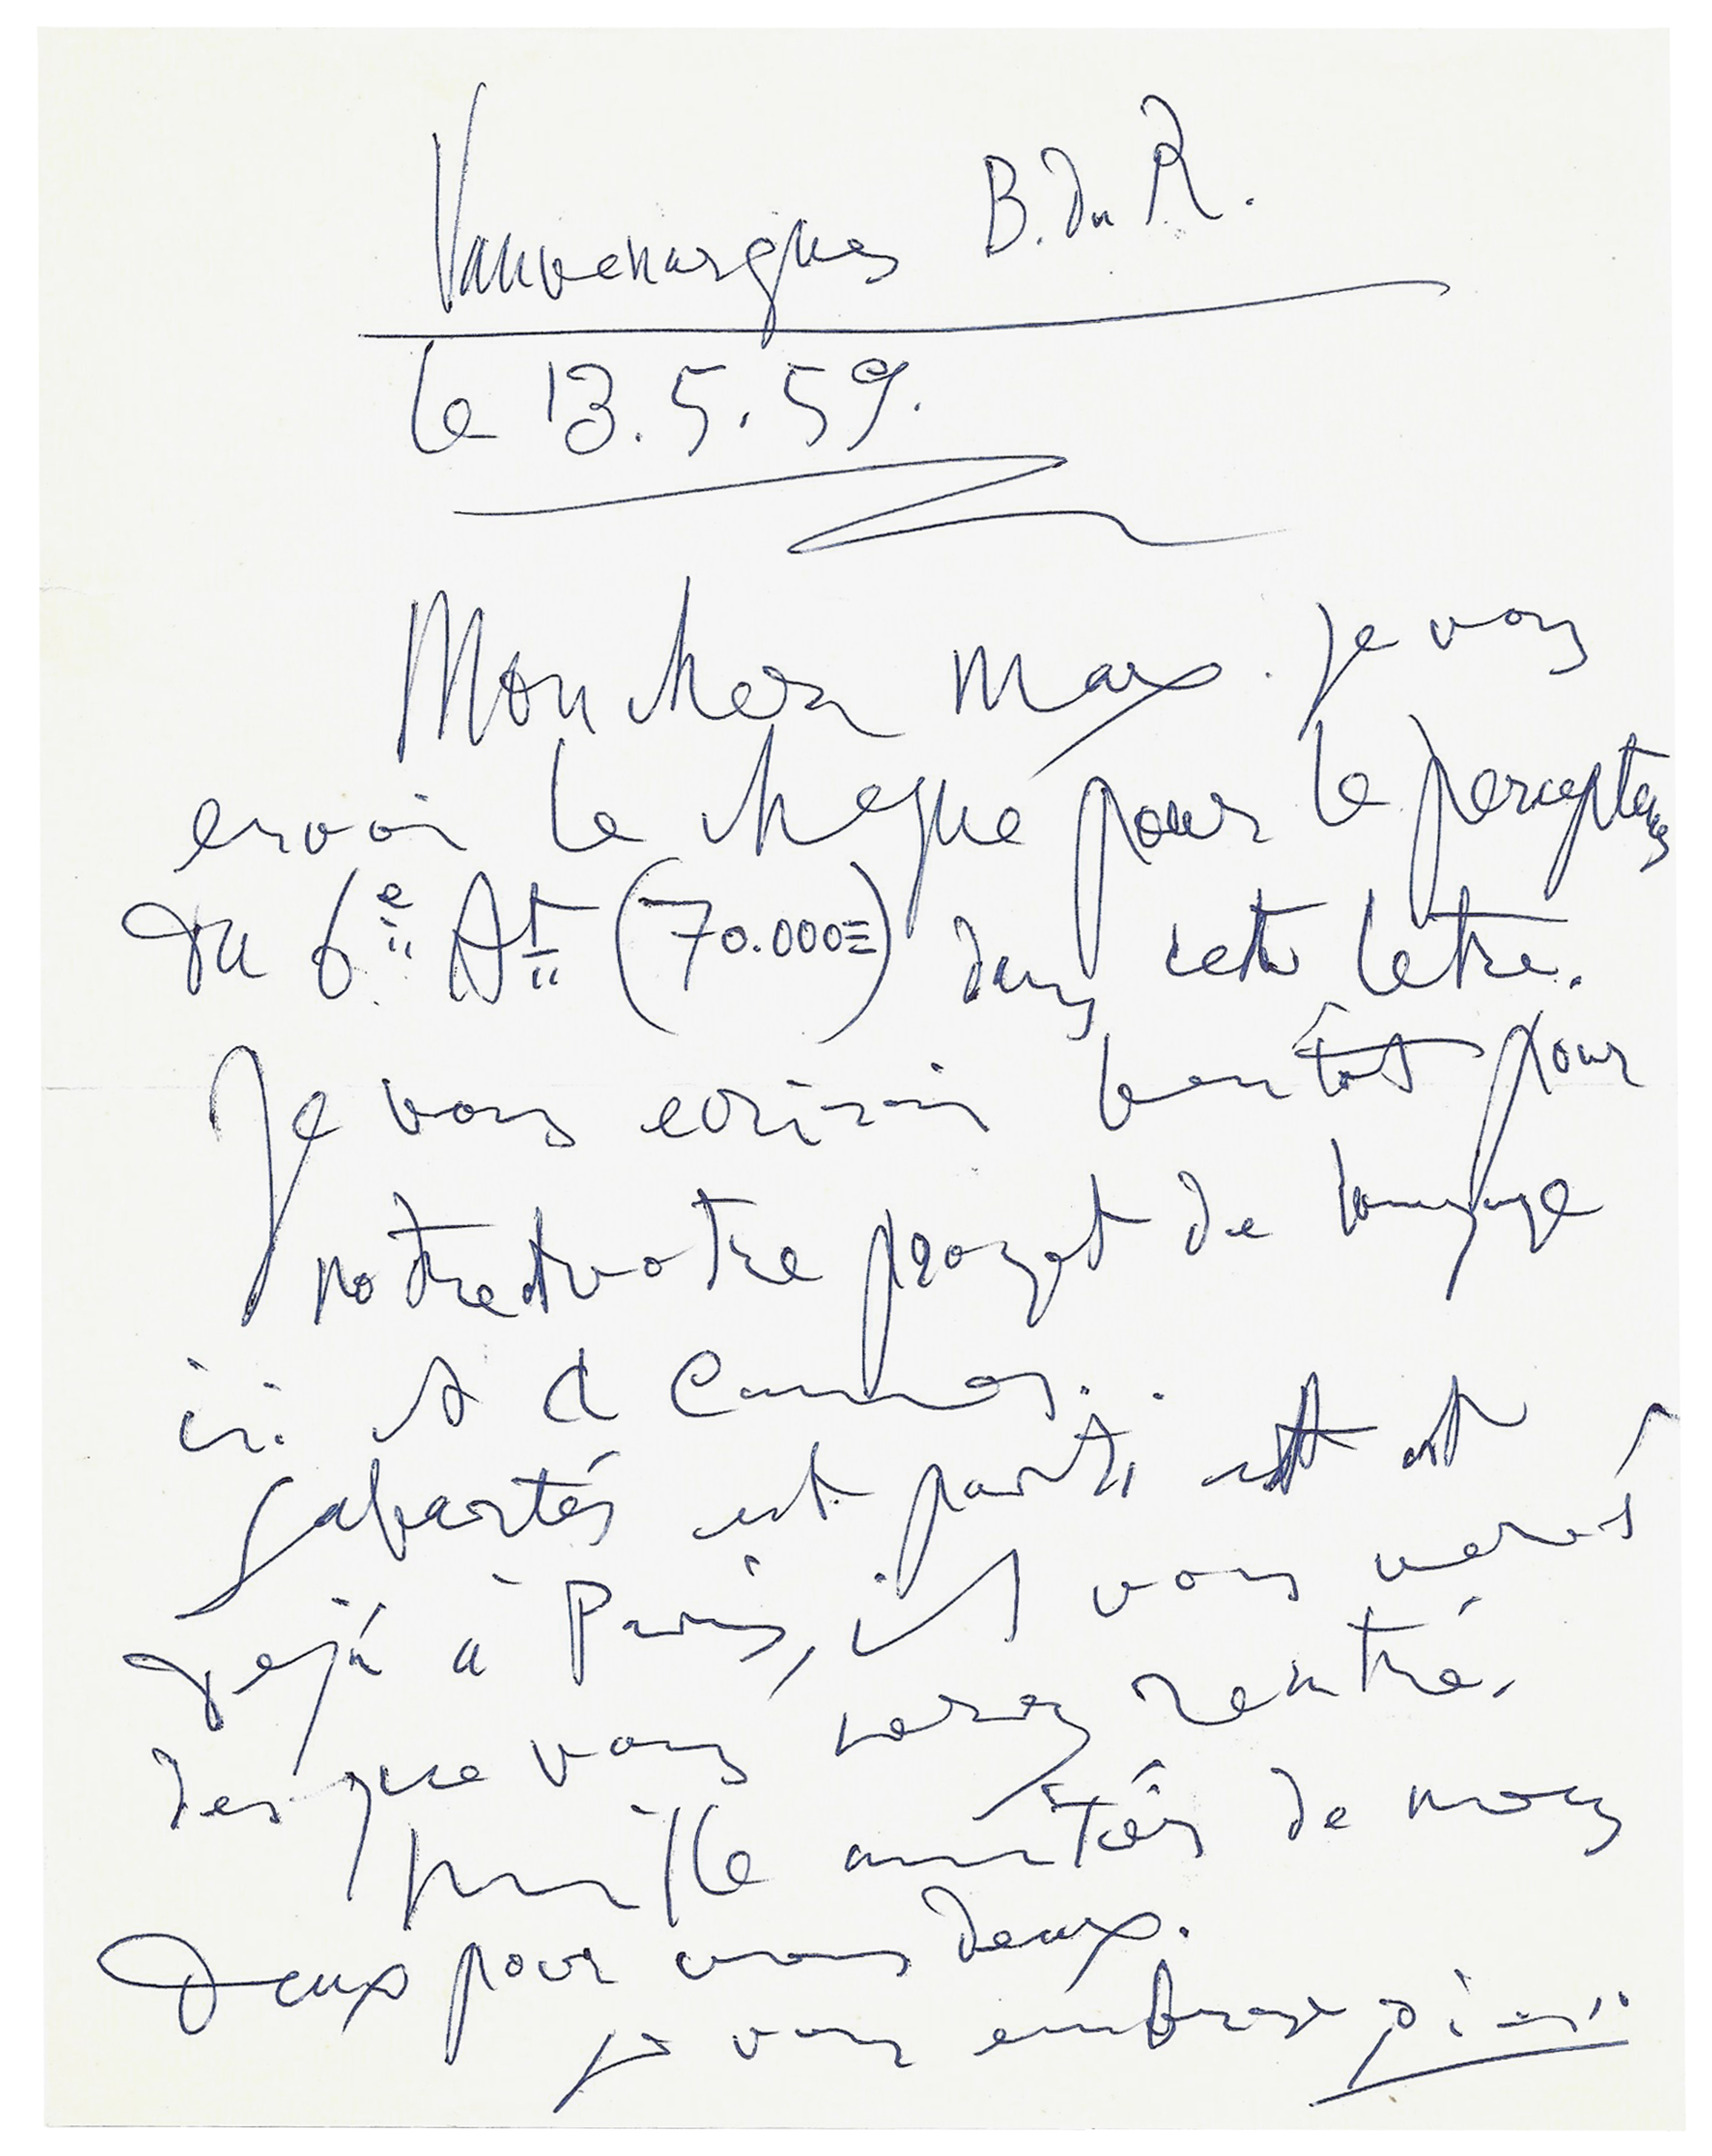 Vauvenargues B. du R.
le 13.5.59.
Mon cher Max. Je vous
envoi le cheque pour le percepteur
du 6e At (70.000=) dans cette letre.
Je vous ecrirai bientôt pour
notre et votre projet de
ici et a Cannes.
Sabartés est parti et est
dejà à Paris, il vous verra
des que vous serez rentré.
mille amitiés de nous
deux pour vous deux.
je vous embrasse